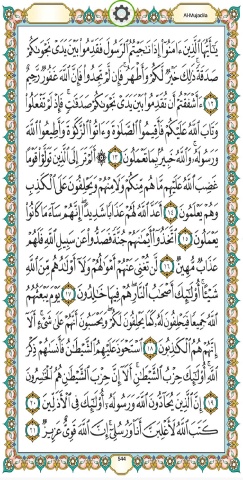 Al-Mujadila
يَـٰٓأَيُّهَا ٱلَّذِينَ ءَامَنُوٓا۟ إِذَا نَـٰجَيْتُمُ ٱلرَّسُولَ فَقَدِّمُوا۟ بَيْنَ يَدَىْ نَجْوَىٰكُمْ
صَدَقَةً ذَٰلِكَ خَيْرٌ لَّكُمْ وَأَطْهَرُ فَإِن لَّمْ تَجِدُوا۟ فَإِنَّ ٱللَّهَ غَفُورٌ رَّحِيمٌ
١٢ ءَأَشْفَقْتُمْ أَن تُقَدِّمُوا۟ بَيْنَ يَدَىْ نَجْوَىٰكُمْ صَدَقَـٰتٍ فَإِذْ لَمْ تَفْعَلُوا۟
وَتَابَ ٱللَّهُ عَلَيْكُمْ فَأَقِيمُوا۟ ٱلصَّلَوٰةَ وَءَاتُوا۟ ٱلزَّكَوٰةَ وَأَطِيعُوا۟ ٱللَّهَ
وَرَسُولَهُۥ وَٱللَّهُ خَبِيرٌۢ بِمَا تَعْمَلُونَ ١٣ ۞ أَلَمْ تَرَ إِلَى ٱلَّذِينَ تَوَلَّوْا۟ قَوْمًا
غَضِبَ ٱللَّهُ عَلَيْهِم مَّا هُم مِّنكُمْ وَلَا مِنْهُمْ وَيَحْلِفُونَ عَلَى ٱلْكَذِبِ
وَهُمْ يَعْلَمُونَ ١٤ أَعَدَّ ٱللَّهُ لَهُمْ عَذَابًا شَدِيدًا إِنَّهُمْ سَآءَ مَا كَانُوا۟
يَعْمَلُونَ ١٥ ٱتَّخَذُوٓا۟ أَيْمَـٰنَهُمْ جُنَّةً فَصَدُّوا۟ عَن سَبِيلِ ٱللَّهِ فَلَهُمْ
عَذَابٌ مُّهِينٌ ١٦ لَّن تُغْنِىَ عَنْهُمْ أَمْوَٰلُهُمْ وَلَآ أَوْلَـٰدُهُم مِّنَ ٱللَّهِ
شَيْـًٔا أُو۟لَـٰٓئِكَ أَصْحَـٰبُ ٱلنَّارِ هُمْ فِيهَا خَـٰلِدُونَ ١٧ يَوْمَ يَبْعَثُهُمُ
ٱللَّهُ جَمِيعًا فَيَحْلِفُونَ لَهُۥ كَمَا يَحْلِفُونَ لَكُمْ وَيَحْسَبُونَ أَنَّهُمْ عَلَىٰ شَىْءٍ أَلَآ
إِنَّهُمْ هُمُ ٱلْكَـٰذِبُونَ ١٨ ٱسْتَحْوَذَ عَلَيْهِمُ ٱلشَّيْطَـٰنُ فَأَنسَىٰهُمْ ذِكْرَ
ٱللَّهِ أُو۟لَـٰٓئِكَ حِزْبُ ٱلشَّيْطَـٰنِ أَلَآ إِنَّ حِزْبَ ٱلشَّيْطَـٰنِ هُمُ ٱلْخَـٰسِرُونَ
١٩ إِنَّ ٱلَّذِينَ يُحَآدُّونَ ٱللَّهَ وَرَسُولَهُۥٓ أُو۟لَـٰٓئِكَ فِى ٱلْأَذَلِّينَ ٢٠
كَتَبَ ٱللَّهُ لَأَغْلِبَنَّ أَنَا۠ وَرُسُلِىٓ إِنَّ ٱللَّهَ قَوِىٌّ عَزِيزٌ ٢١
544